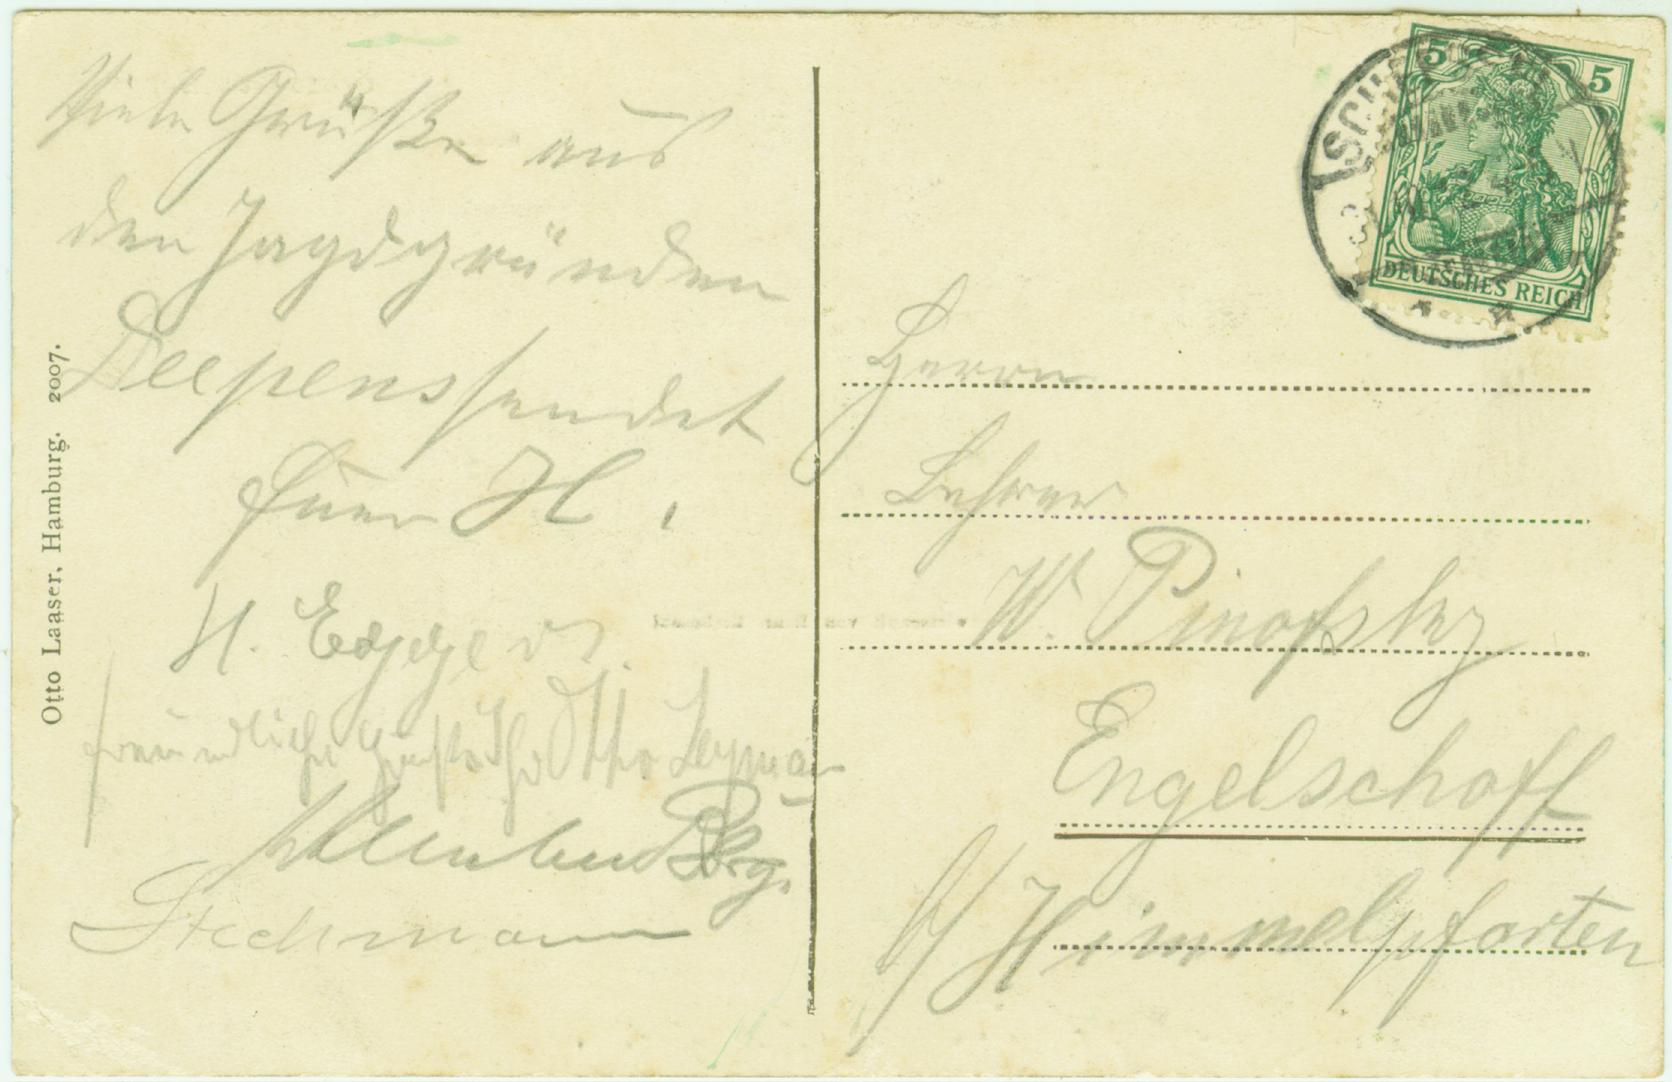 Viele Grüße aus
den Jagdgründen
Deepen sendet
H.
H. Eggers.
freundliche Otto
Steckmann
Otto Laaser, Hamburg. 2007.
5 5
DEUTSCHES REICH
Herrn
Lehrer
W. Pinofsky
Engelschoff
b/ Himmelpforten